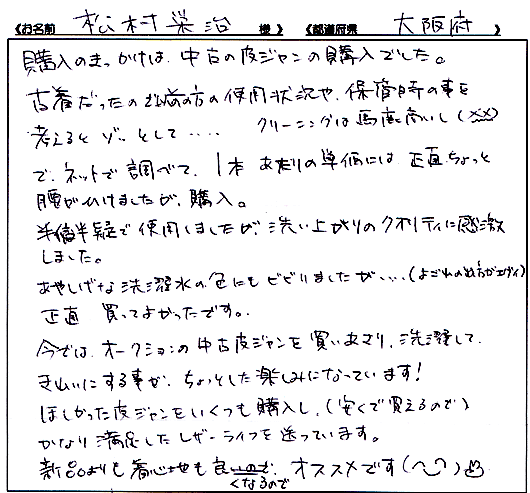 《お名前 松村栄治 様 》《都道府県 大阪府 》
購入のきっかけは、中古の皮ジャンの購入でした。
古着だったので前の方の使用状況や、保管時の事を
考えると ゾーとして‥‥ クリーニングは馬鹿高いし(××)
で、ネットで調べて、1本あたりの単価には、正直ちょっと
腰がひけましたが、購入。
半信半疑で使用しましたが、洗い上がりのクオリティに感激
しました。
あやしげな洗濯水の色にもビビりましたが‥‥(よごれのぬけ方がエグイ)
正直 買ってよかったです。
今では、オークションの中古皮ジャンを買いあさり、洗濯して、
きれいにする事が、ちょっとした楽しみになっています!
ほしかった皮ジャンをいくつも購入し、(安くで買えるので)
かなり満足したレザーライフを送っています。
新品よりも着心地も良いので、オススメです(^_^)
くなるので